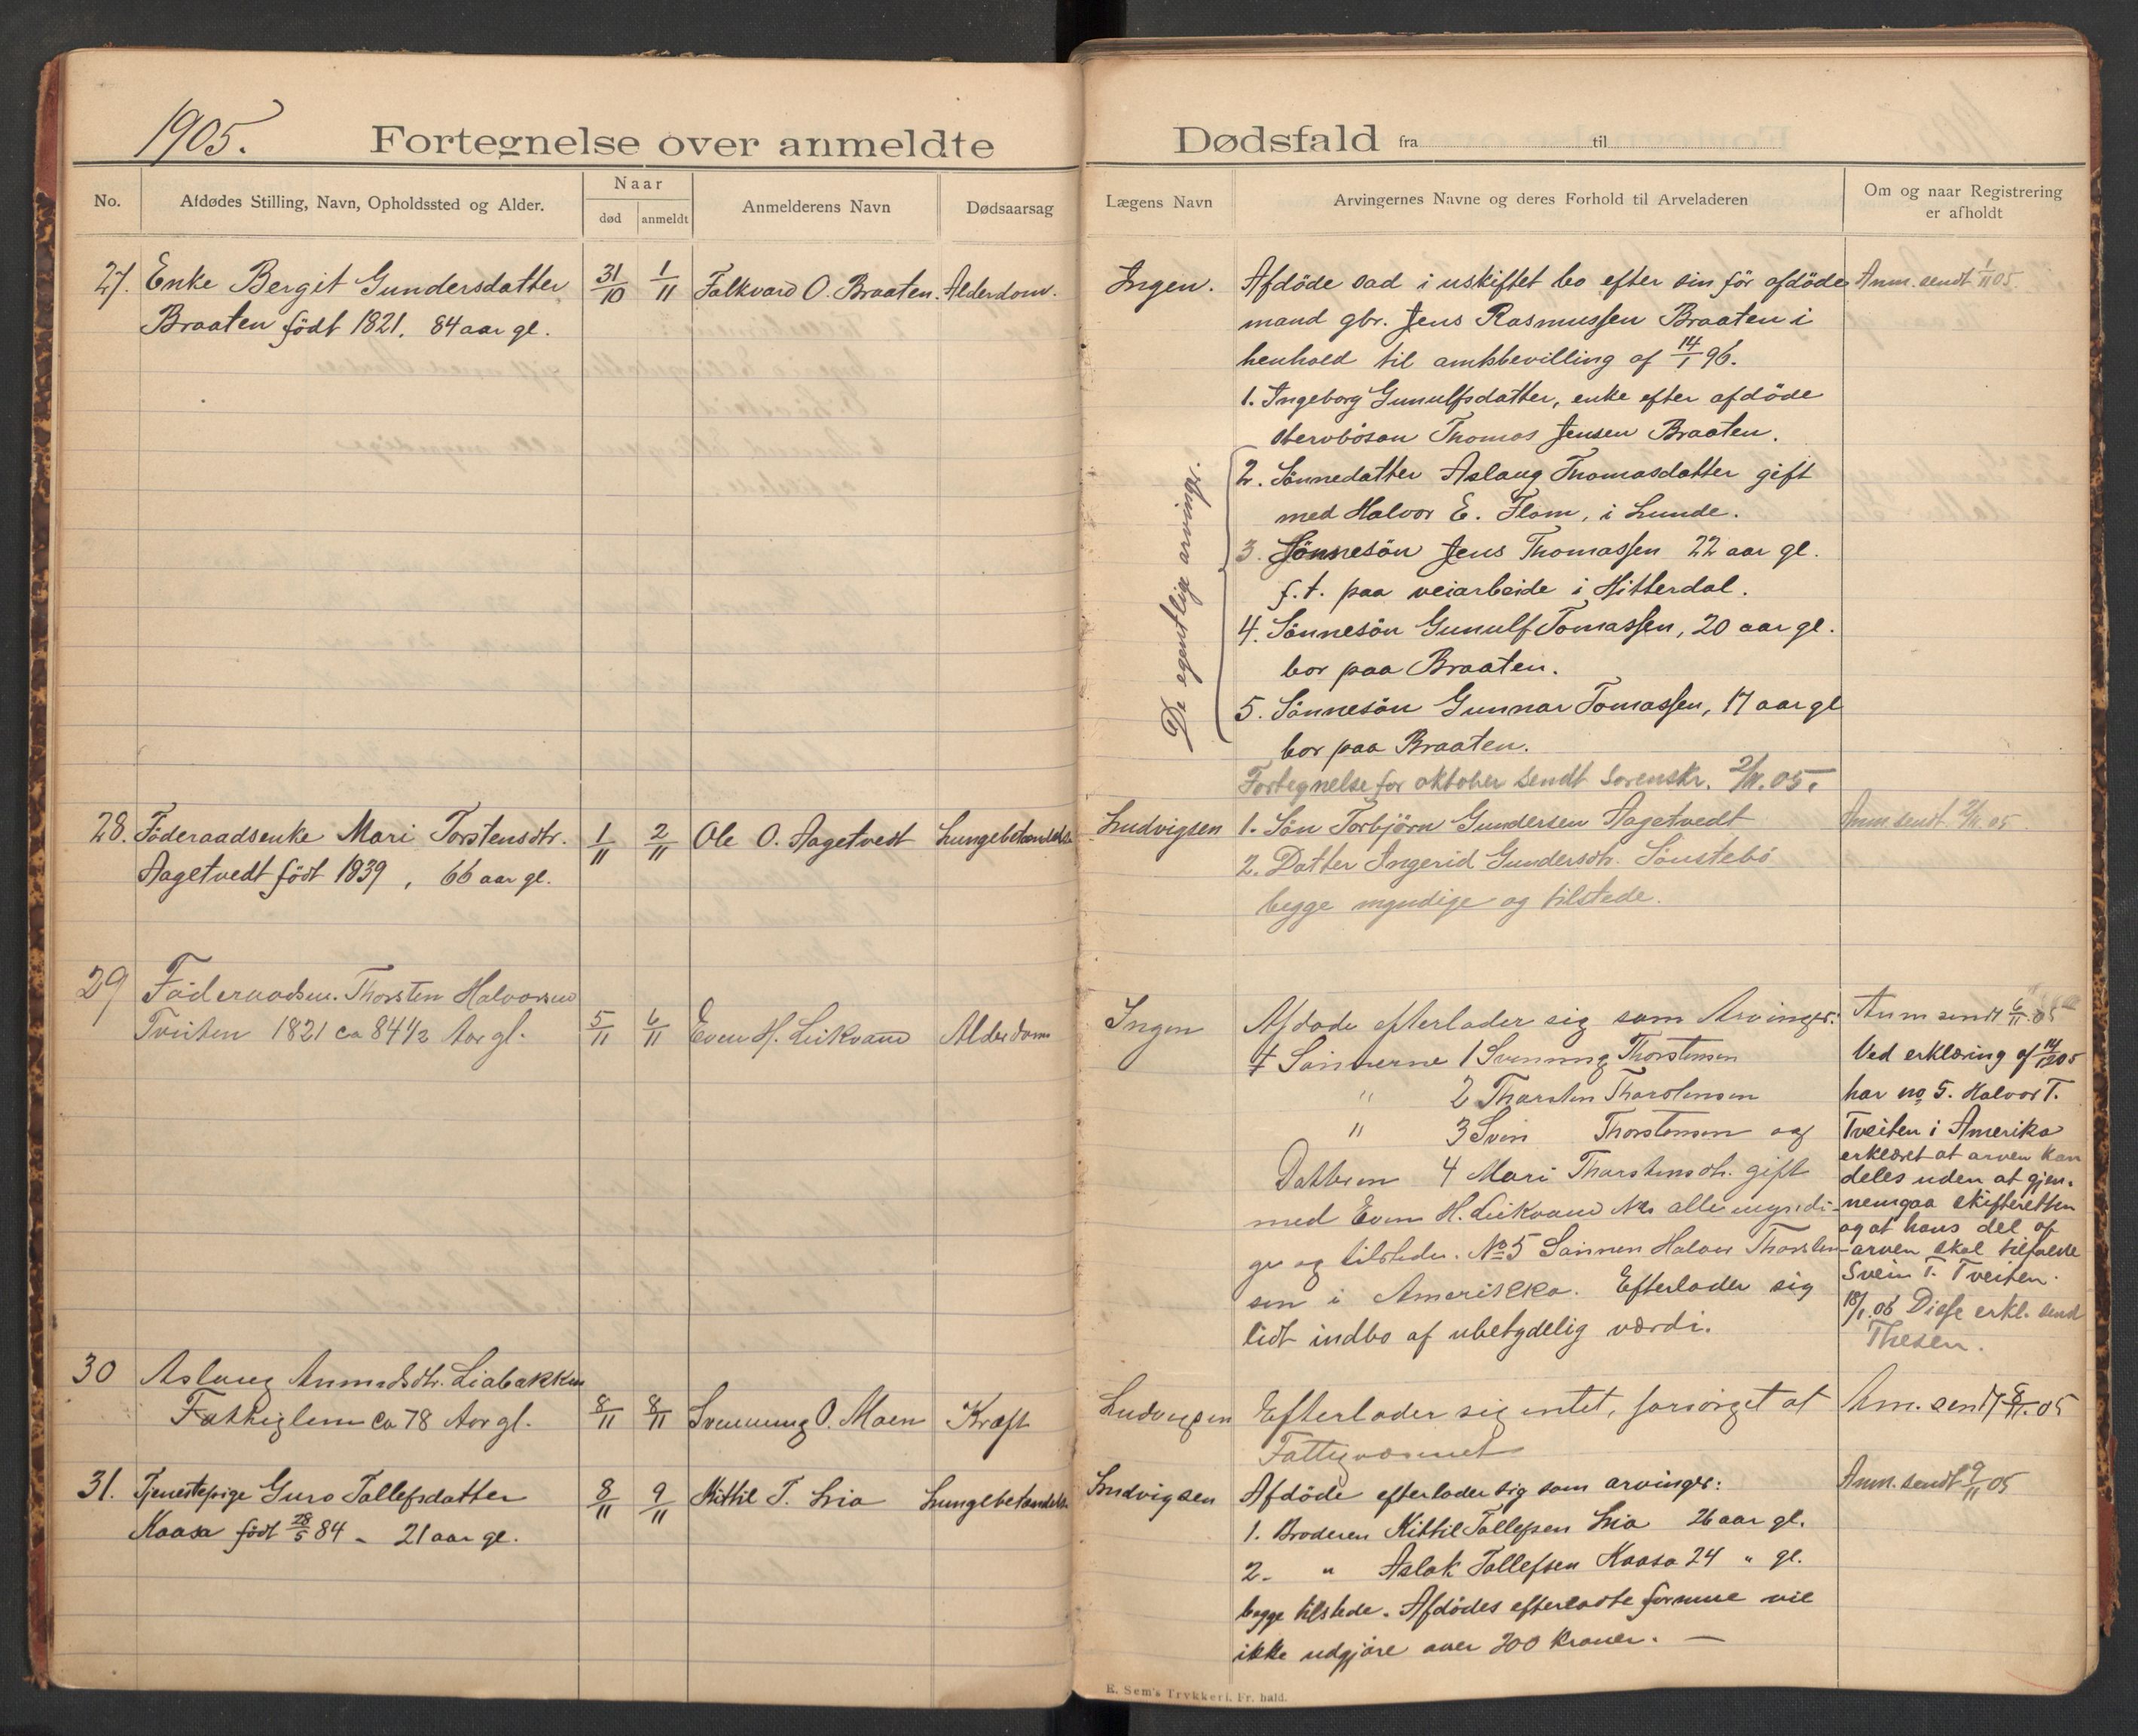 1905.
Fortegnelse over anmeldte Dødsfald fra til
No.
Afdødes Stilling, Navn, Opholdssted og Alder.
Naar
død anmeldt
Anmelderens Navn
Dødsaarsag
Lægens Navn
Arvingernes Navne og deres Forhold til Arveladeren
Om og naar Registrering
er afholdt
27. Enke Bergit Gundersdatter 31/10 1/11 Falkvard O. Braaten. Alderdom.
Braaten födt 1821. 84 aar gl.
Ingen. Afdöde sad i uskiftet bo efter sin för afdöde Anm. sendt 1/11 05.
mand gbr. Jens Rasmussen Braaten i
henhold til amtsbevilling af 14/1 96.
1. Ingeborg Gunulfsdatter, enke efter afdöde
Thomas Jensen Braaten.
De egentlige arvinger.
2. Sönnedatter Aslaug Thomasdatter gift
med Halvor E. Flom, i Lunde.
3. Sönnesön Jens Thomassen 22 aar gl.
f. t. paa veiarbeide i Hitterdal.
4. Sönnesön Gunulf Tomassen, 20 aar gl.
bor paa Braaten.
5. Sönnesön Gunnar Tomassen, 17 aar gl
bor paa Braaten.
Fortegnelse for oktober sendt Sorenskr. 2/11. 05.
28. Föderaadsenke Mari Torstensdtr. 1/11 2/11 Ole O. Aagetvedt Lungebetændelse
Aagetvedt födt 1839, 66 aar gl.
Ludvigsen 1. Sön Torbjörn Gundersen Aagetvedt Anm. sendt 2/11. 05
2. Datter Ingerid Gundersdtr. Sönstebö
begge myndige og tilstede.
29 Föderaadsm. Thorsten Halvorsen
Tveiten 1821 ca 84 1/2 Aar gl. 5/11 6/11 Even H. Leikvand Alderdom
Ingen Afdøde efterlader sig som Arvinger: Anm sendt 6/11. 05
4 Sönnerne 1 Svenning Thorstensen
" 2 Thorsten Thorstensen
" 3 Svein Thorstensen og
Datteren 4 Mari Thorstensdtr. gift
med Even H. Leikvand alle myndi-
ge og tilstede. No 5 Sönnen Halvor Thorsten-
sen i Amerikka. Efterlader sig
lidt indbo af ubetydelig værdi.
Ved erklæring af 14/12 05
har no 5. Halvor T.
Tveiten i Amerika
erklæret at arven kan
deles uden at gjen-
nemgaa skifteretten
og at hans del af
arven skal tilfalde
Svein T. Tveiten.
18/1. 06 Disse erkl. sendt
Thesen.
30 Aslaug Anmundsdtr. Liabakken
Fattiglem ca 78 Aar gl. 8/11 8/11 Svenning O. Moen Kræft
Ludvigsen Efterlader sig intet, forsörget af Anm. sendt 8/11. 05
Fattigvæsenet
31. Tjenestepige Guro Tollefsdatter 8/11 9/11 Kittil T. Lia Lungebetændelse
Kaasa födt 28/5 84 - 21 aar gl.
Ludvigsen Afdöde efterlader sig som arvinger: Anm. sendt 9/11 05
1. Broderen Kittil Tollefsen Lia 26 aar gl.
2. " Aslak Tollefsen Kaasa 24 " gl.
begge tilstede. Afdödes efterladte formue vil
ikke udgjöre over 200 kroner. —
E. Sem's Trykkeri, Fr. hald.